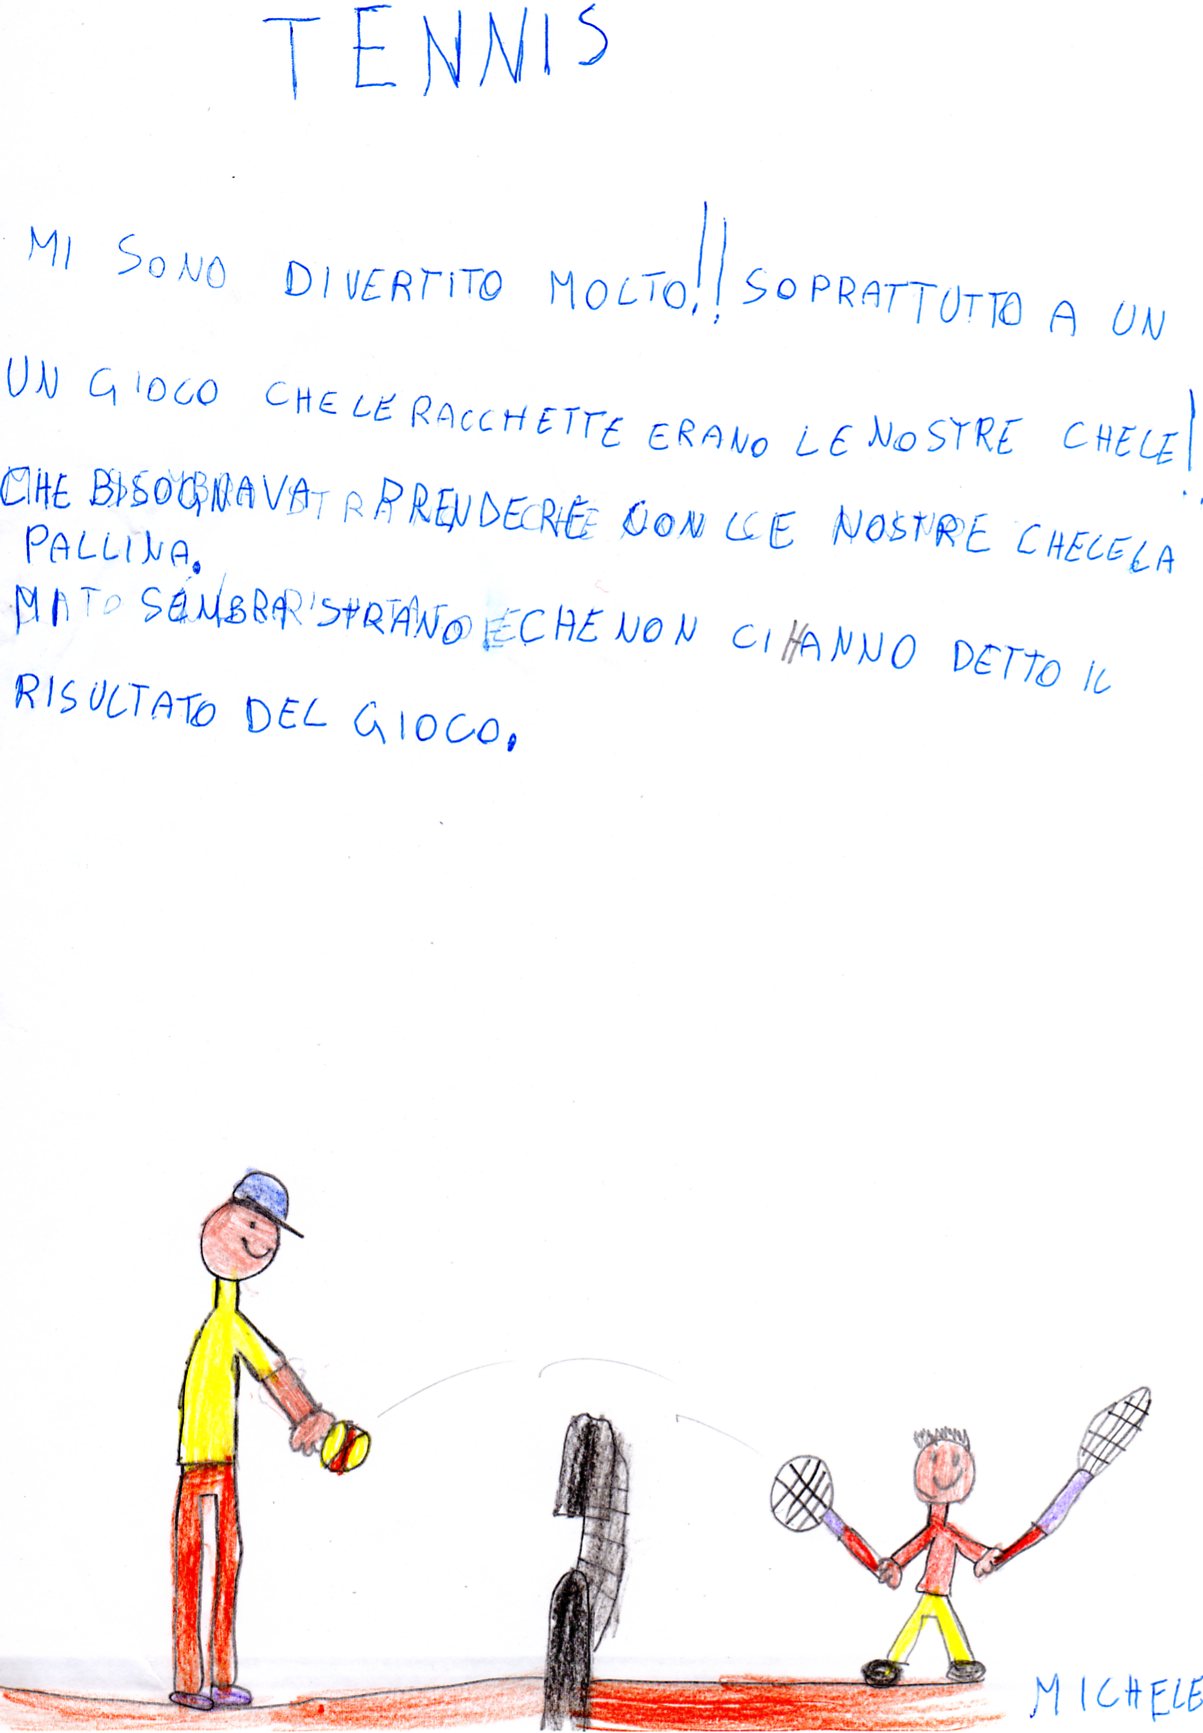 TENNIS
MI SONO DIVERTITO MOLTO!! SOPRATTUTTO A UN
UN GIOCO CHE LE RACCHETTE ERANO LE NOSTRE CHELE!!
CHE BISOGNAVA PRENDERE CON LE NOSTRE CHELE LA
PALLINA.
MA SEMBRA STRANO CHE NON CI HANNO DETTO IL
RISULTATO DEL GIOCO.
MICHELE